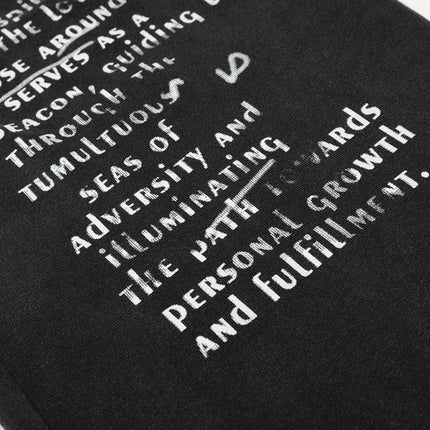 THE LO
SE AROUND
SERVES AS A
BEACON, GUIDING
THROUGH THE
TUMULTUOUS
SEAS OF
ADVERSITY AND
illuminating
THE PATH TOWARDS
PERSONAL GROWTH
AND fulfillment.